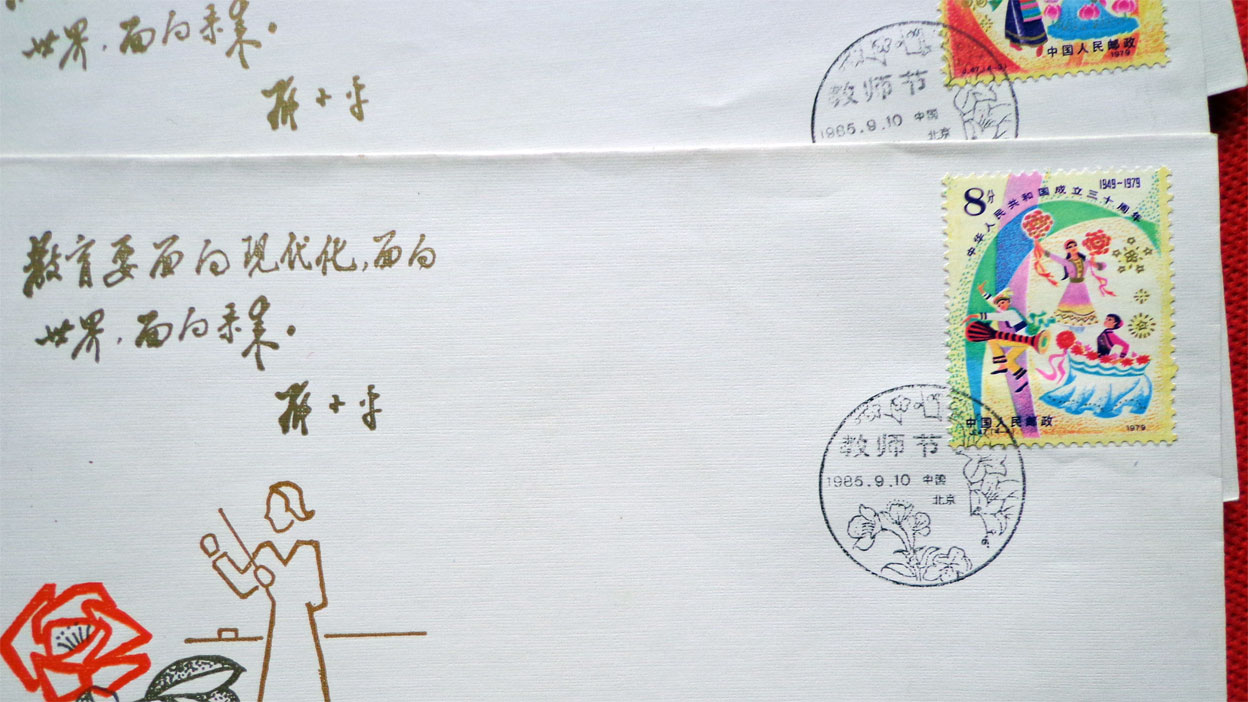 世界,面向未来。
邓小平
中国人民邮政
1979
J.47.(4-3)
教师节
1985.9.10 中国
北京
教育要面向现代化,面向
世界,面向未来。
邓小平
8分
1949-1979
中华人民共和国成立三十周年
中国人民邮政
1979
教师节
1985.9.10 中国
北京